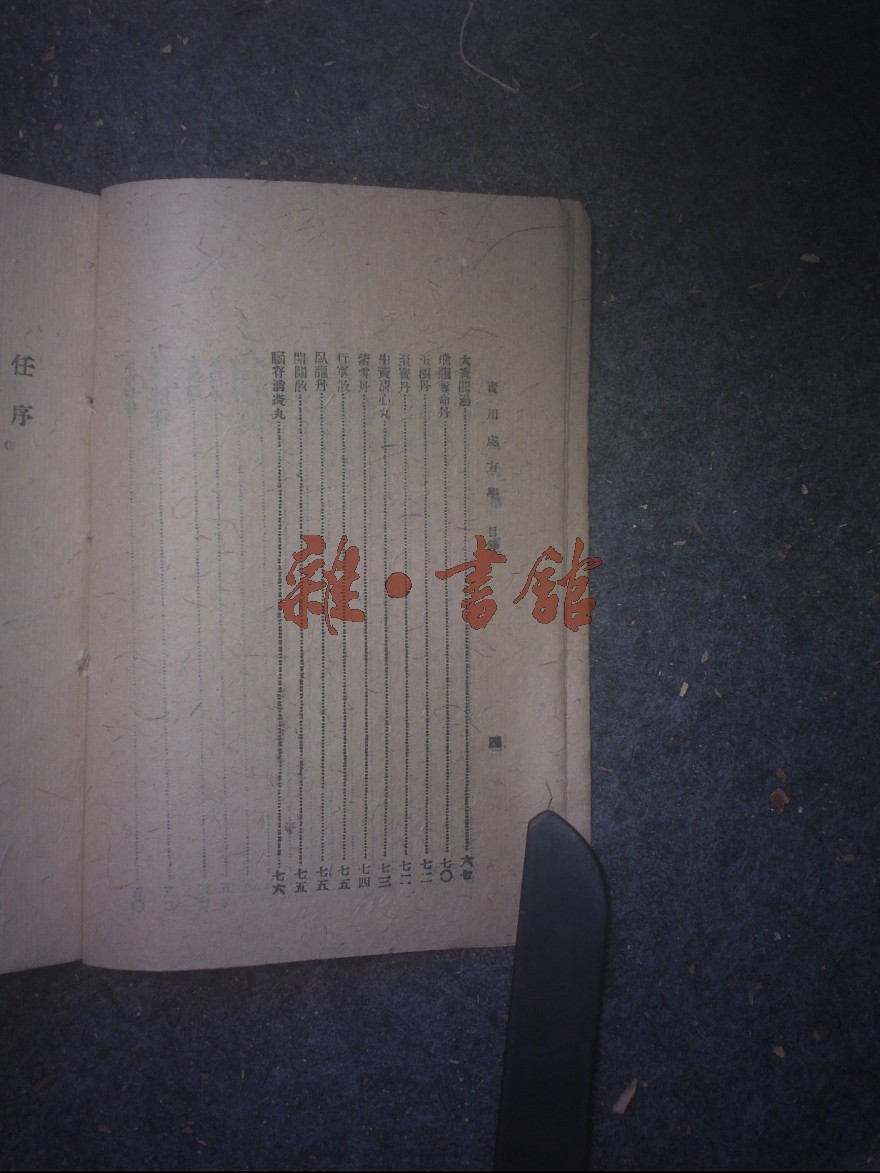 實用處方學 目錄 四
大黃龍湯 六七
飛龍奪命丹 七〇
玉樞丹 七二
至寶丹 七二
牛黃清心丸 七三
紫雪丹 七四
行軍散 七五
臥龍丹 七五
開關散 七五
頤春消炎丸 七六
任序
雜·書館